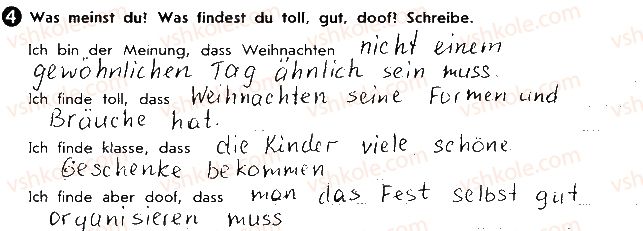 4 Was meinst du? Was findest du toll, gut, doof? Schreibe.
Ich bin der Meinung, dass Weihnachten nicht einem
gewöhnlichen Tag ähnlich sein muss.
Ich finde toll, dass Weihnachten seine Formen und
Bräuche hat.
Ich finde klasse, dass die Kinder viele schöne
Geschenke bekommen
Ich finde aber doof, dass man das Fest selbst gut
organisieren muss